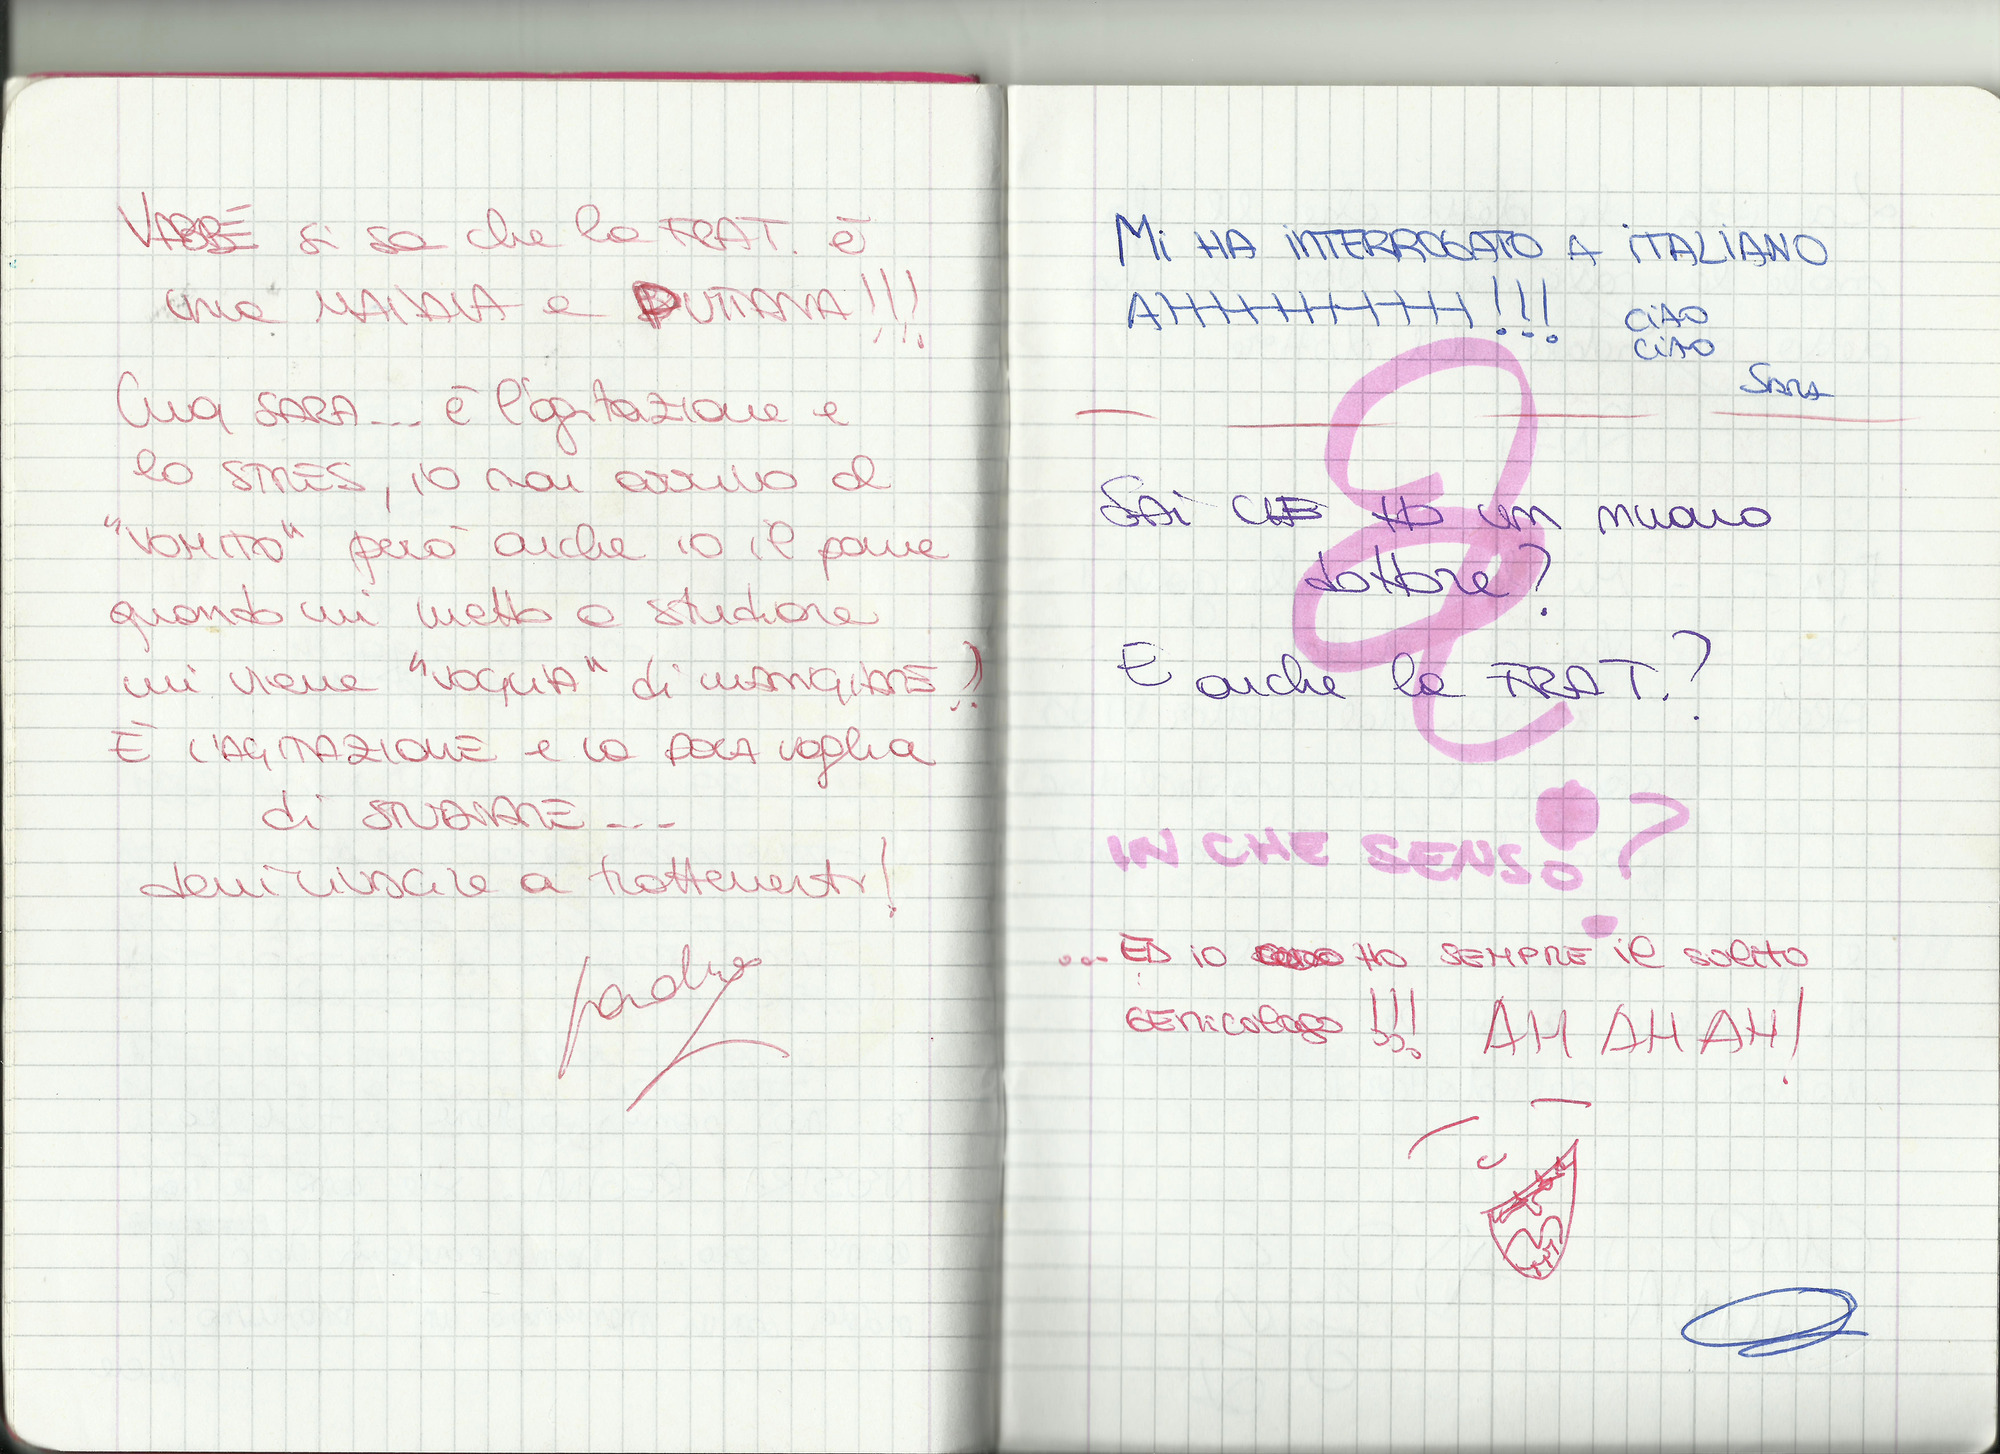 VABBÈ si sa che la FRAT. è
una MAIALA e PUTTANA!!!
Cmq SARA... è l'agitazione e
lo STRES, io non arrivo al
"VOMITO" però anche io il pane
quando mi metto a studiare
mi viene "VOGLIA" di MANGIARE!!
È L'AGITAZIONE e la POCA voglia
di STUDIARE...
devi riuscire a trattenerti!
Mi HA iNTERROGATO A iTALIANO
AHHHHHHHH!!! CiAO
CiAO
SARA
SAi CHE HO un nuovo
dottore?
E anche la FRAT.?
IN CHE SENSO?
... ED IO HO SEMPRE il solito
GENicologo!!! AH AH AH!